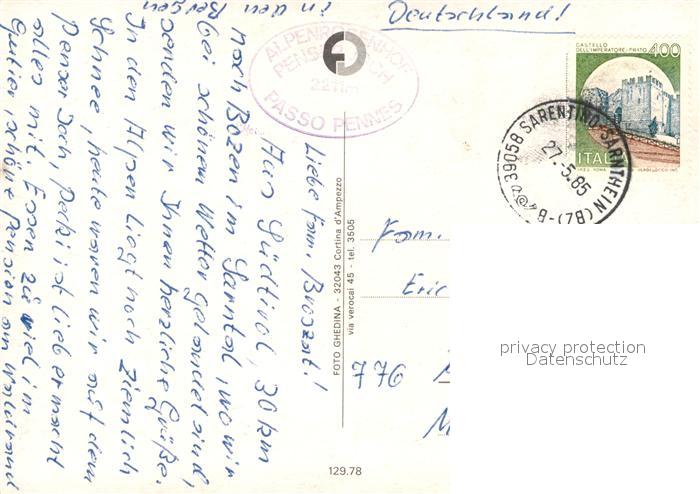 Deutschland!
ALPENROSENHOF
PENSION
2211m
PASSO PENNES
CASTELLO
DELL'IMPERATORE · PRATO
400
ITALIA
39058 SARENTINO-SARNTHEIN (BZ)
27.5.85
Liebe Fam. Broszat!
Aus Südtirol, 30 km
nach Bozen im Sarntal, wo wir
bei schönem Wetter gelandet sind,
senden wir Ihnen herzliche Grüße.
In den Alpen liegt noch ziemlich
Schnee, heute waren wir auf dem
Penser Joch, Pelki ist lieb er macht
alles mit. Essen zu viel im
schöne Pension am Waldrand
in den Bergen
FOTO GHEDINA - 32043 Cortina d'Ampezzo
via verocai 45 - tel. 3505
Fam.
Eric
776
129.78
privacy protection
Datenschutz